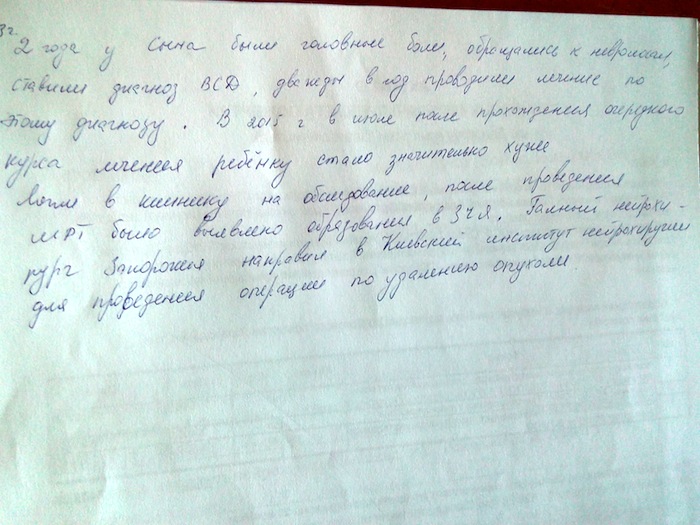 2 года у сына были головные боли, обращались к неврологам,
ставили диагноз ВСД, дважды в год проводили лечение по
этому диагнозу. В 2015 г в июле после прохождения очередного
курса лечения ребёнку стало значительно хуже
Легли в клинику на обследование, после проведения
МРТ было выявлено образования в ЗЧЯ. Главный нейрохи-
рург Запорожья направил в Киевский институт нейрохирургии
для проведения операции по удалению опухоли